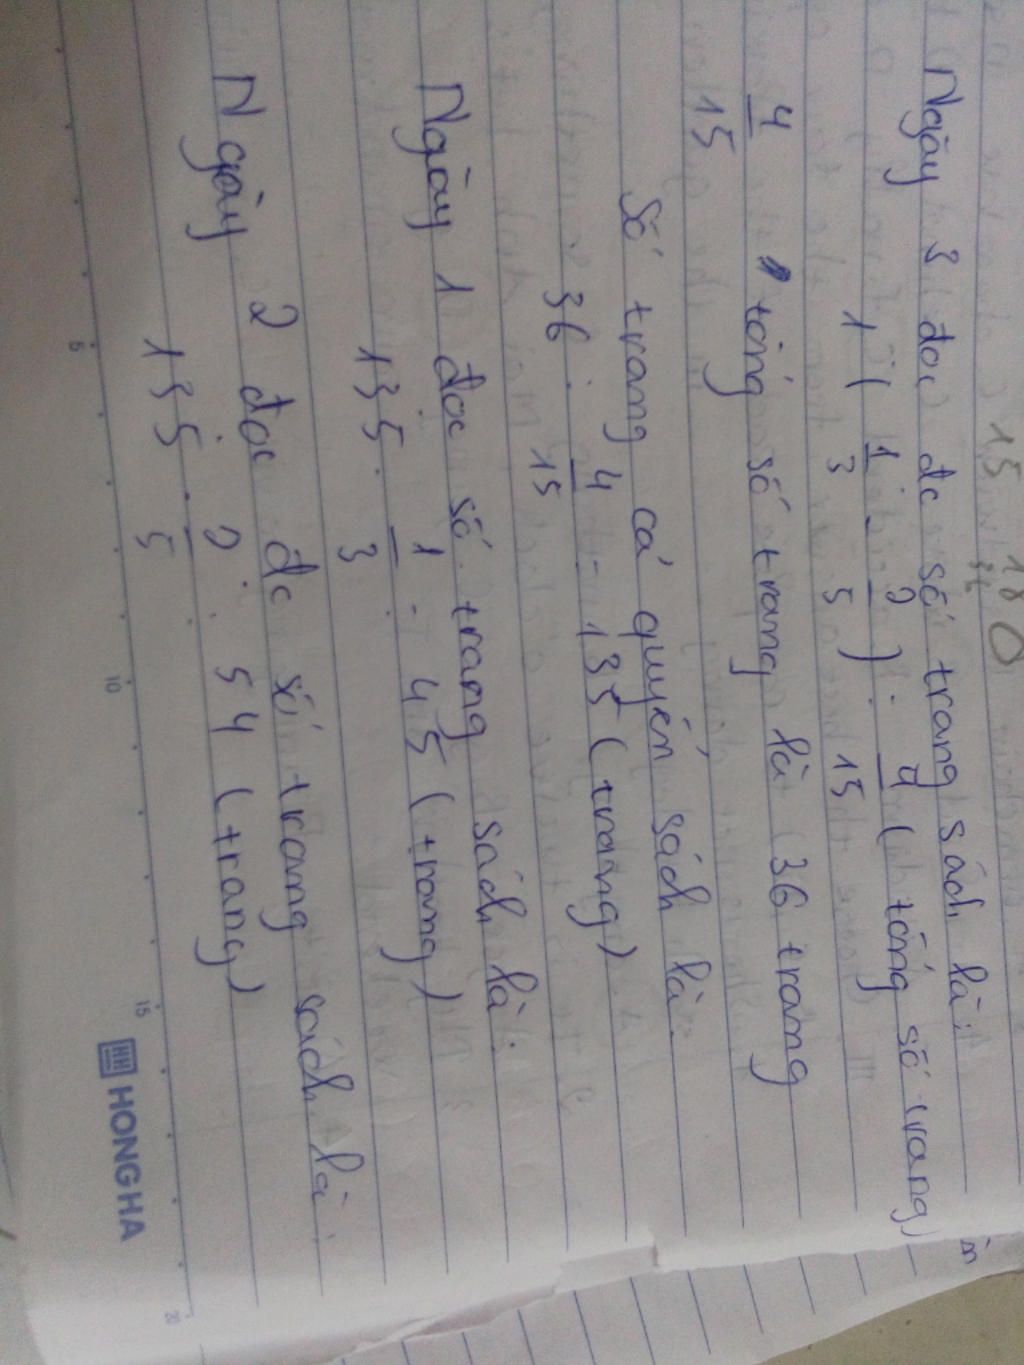 Ngày 3 đọc đc số trang sách là:
1 - ( 1/3 + 2/5 ) = 4/15 ( tổng số trang)
4/15 tổng số trang là 36 trang
Số trang cả quyển sách là:
36 : 4/15 = 135 ( trang)
Ngày 1 đọc số trang sách là:
135 . 1/3 = 45 ( trang)
Ngày 2 đọc đc số trang sách là:
135 . 2/5 = 54 ( trang)
5 10 15 20
HH HONG HA